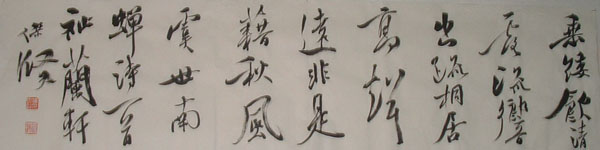 垂緌飲清
露流響
出疏桐居
高聲
遠非是
藉秋風
虞世南
蟬詩一首
祉蘭軒
傑